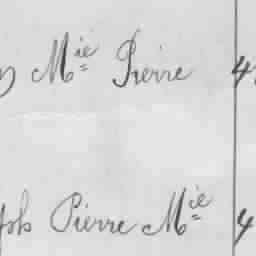 Mie Pierre 4
Pierre Mie 4